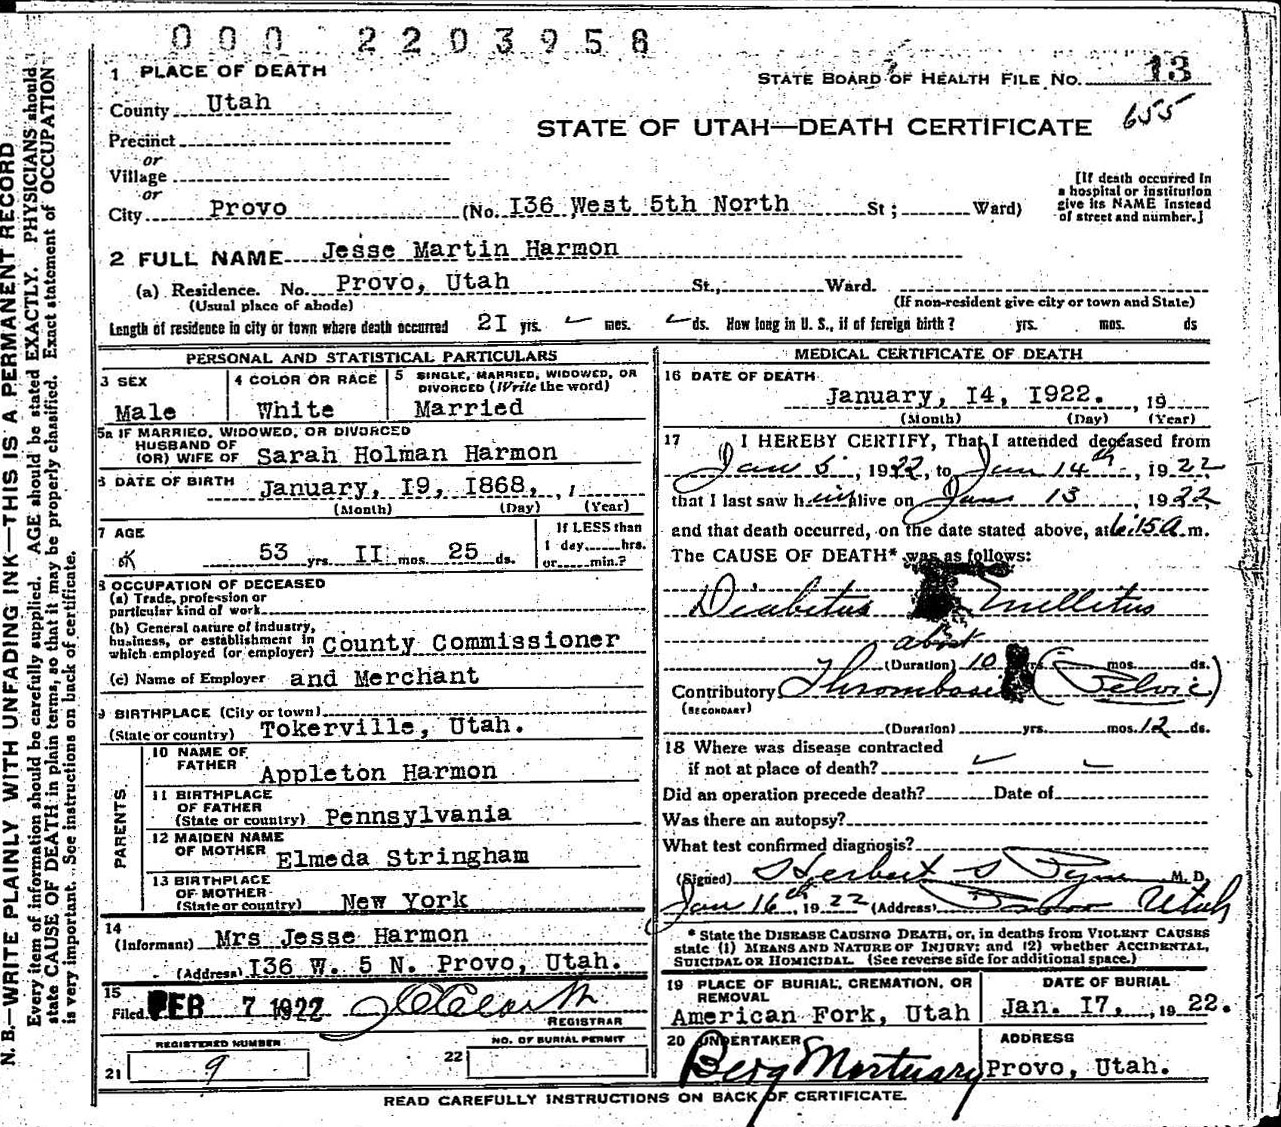 000 2203958
1 PLACE OF DEATH
STATE BOARD OF HEALTH FILE NO. 13
County Utah
655
STATE OF UTAH—DEATH CERTIFICATE
Precinct
or
Village
or
City Provo (No. I36 West 5th North St; Ward)
[If death occurred in a hospital or institution give its NAME instead of street and number.]
2 FULL NAME Jesse Martin Harmon
(a) Residence. No. Provo, Utah St., Ward.
(Usual place of abode) (If non-resident give city or town and State)
Length of residence in city or town where death occurred 2I yrs. mos. ds. How long in U. S., if of foreign birth? yrs. mos. ds
PERSONAL AND STATISTICAL PARTICULARS
3 SEX Male
4 COLOR OR RACE White
5 SINGLE, MARRIED, WIDOWED, OR DIVORCED (Write the word) Married
5a IF MARRIED, WIDOWED, OR DIVORCED
HUSBAND OF
(OR) WIFE OF Sarah Holman Harmon
6 DATE OF BIRTH January, I9, I868,
(Month) (Day) (Year)
7 AGE 53 yrs II mos 25 ds.
If LESS than
1 day, hrs.
or min.?
8 OCCUPATION OF DECEASED
(a) Trade, profession or
particular kind of work
(b) General nature of industry,
business, or establishment in
which employed (or employer) County Commissioner
(c) Name of Employer and Merchant
9 BIRTHPLACE (City or town)
(State or country) Tokerville, Utah.
PARENTS
10 NAME OF
FATHER Appleton Harmon
11 BIRTHPLACE
OF FATHER
(State or country) Pennsylvania
12 MAIDEN NAME
OF MOTHER Elmeda Stringham
13 BIRTHPLACE
OF MOTHER
(State or country) New York
14
(Informant) Mrs Jesse Harmon
(Address) I36 W. 5 N. Provo, Utah.
15
Filed FEB 7 1922
REGISTRAR
REGISTERED NUMBER
21 9
NO. OF BURIAL PERMIT
22
MEDICAL CERTIFICATE OF DEATH
16 DATE OF DEATH
January, I4, I922. , 19
(Month) (Day) (Year)
17 I HEREBY CERTIFY, That I attended deceased from
Jan 5, 1922, to Jan 14th, 1922
that I last saw him alive on Jan 13 1922
and that death occurred, on the date stated above, at 6:15 a.m.
The CAUSE OF DEATH* was as follows:
Diabetus Mellitus
about
(Duration) 10 yrs mos. ds.
Contributory Thrombosis (Pelvic)
(SECONDARY)
(Duration) yrs. mos. 12 ds.
18 Where was disease contracted
if not at place of death?
Did an operation precede death? Date of
Was there an autopsy?
What test confirmed diagnosis?
(Signed) Herbert S Pyne M. D.
Jan 16th, 1922 (Address) Provo Utah
* State the DISEASE CAUSING DEATH, or, in deaths from VIOLENT CAUSES
state (1) MEANS AND NATURE OF INJURY; and (2) whether ACCIDENTAL,
SUICIDAL OR HOMICIDAL. (See reverse side for additional space.)
19 PLACE OF BURIAL, CREMATION, OR REMOVAL
American Fork, Utah
DATE OF BURIAL
Jan. I7, , 1922.
20 UNDERTAKER
Berg Mortuary
ADDRESS
Provo, Utah.
READ CAREFULLY INSTRUCTIONS ON BACK OF CERTIFICATE.
N. B.—WRITE PLAINLY WITH UNFADING INK—THIS IS A PERMANENT RECORD
Every item of information should be carefully supplied. AGE should be stated EXACTLY. PHYSICIANS should
state CAUSE OF DEATH in plain terms, so that it may be properly classified. Exact statement of OCCUPATION
is very important. See instructions on back of certificate.